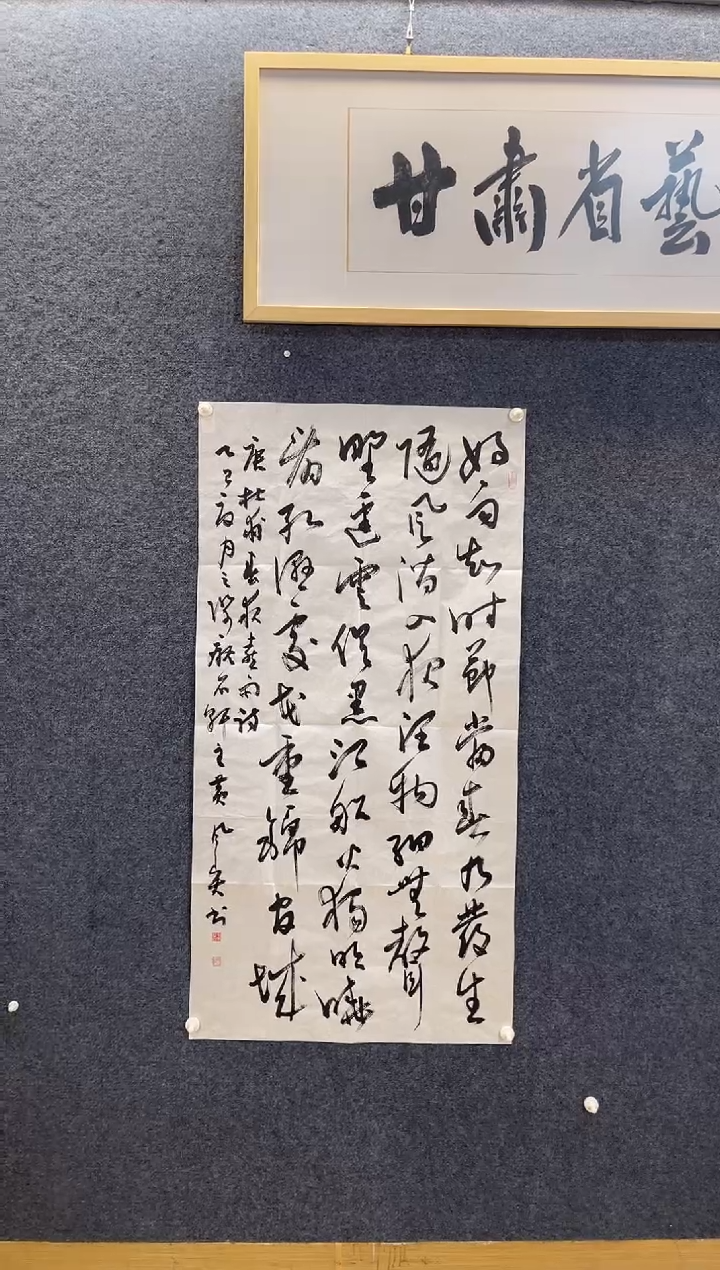 甘肅省藝
好雨知时節當春乃發生
隨風潛入夜潤物細無聲
野逕雲俱黑江船火獨明曉
看紅濕處花重錦官城
唐杜甫春夜喜雨詩
乙巳夏月之石軒主黄书